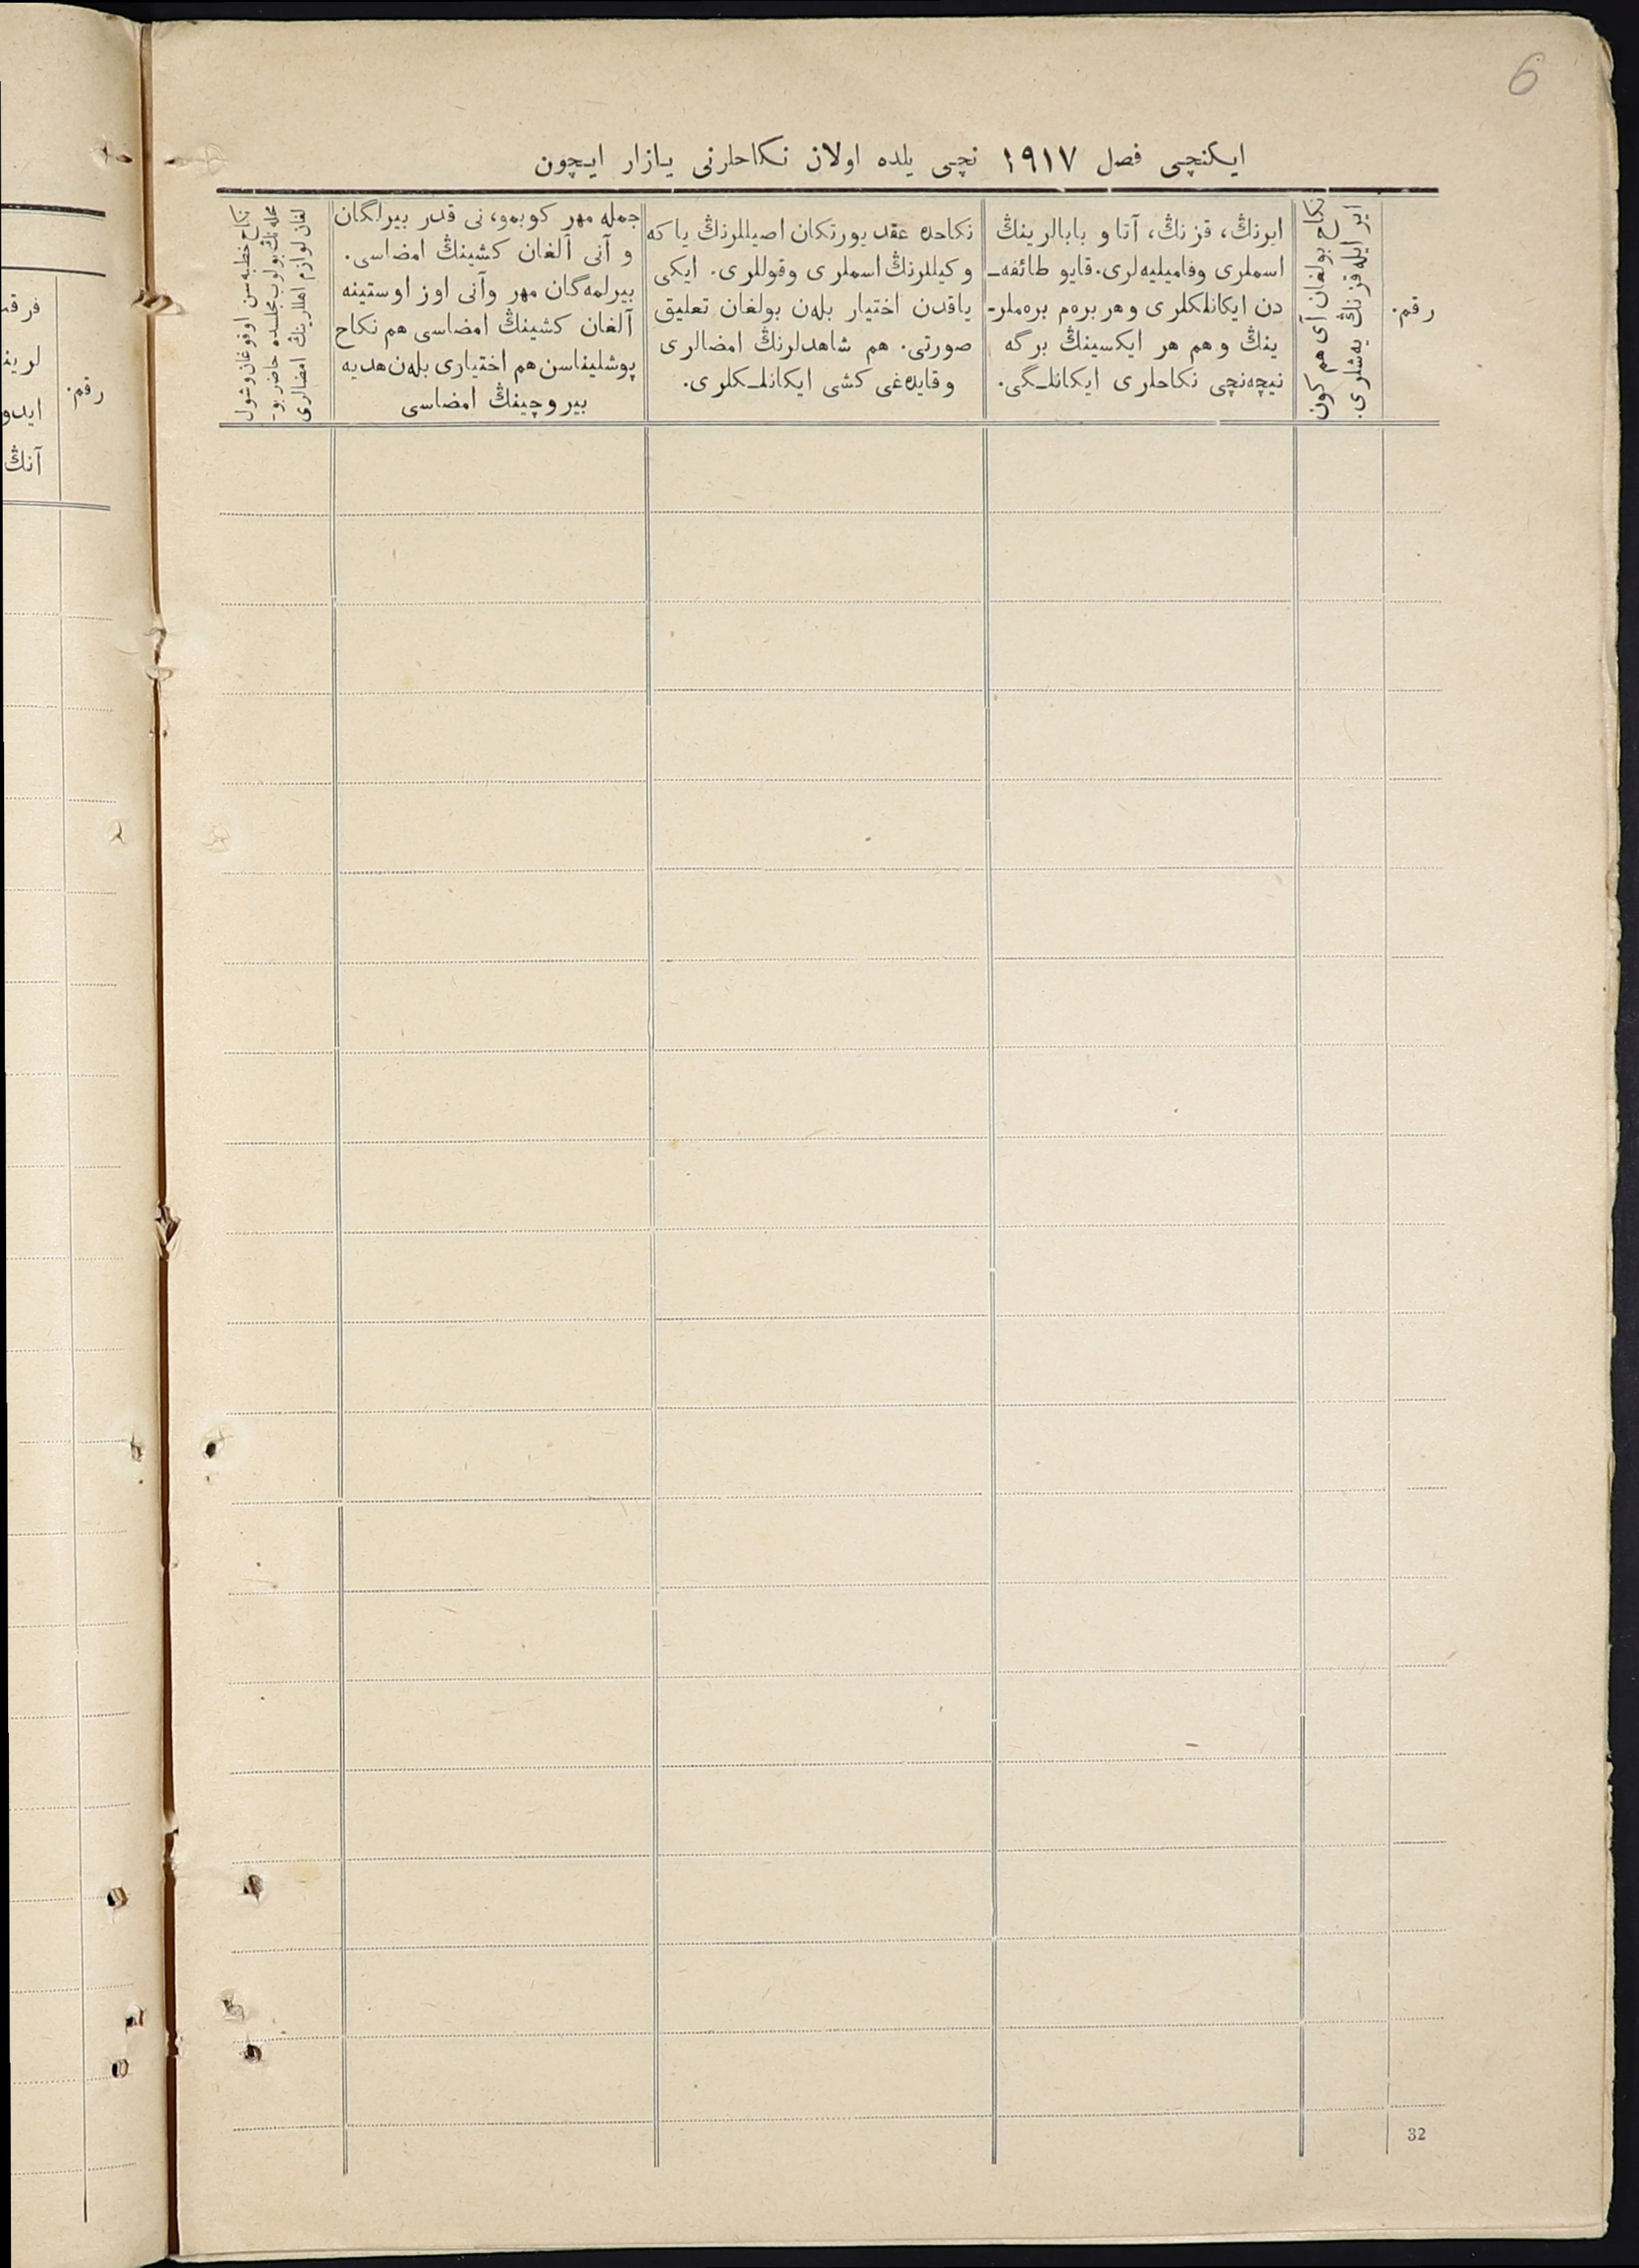 6
ایکنچی فصل ١٩١٧ نچی یلده اولان نکاحلرنی یازار ایچون
رقم.
ایر ایله قزنڭ یه‌شلری.
نکاح بولغان آی هم کون
ایرنڭ، قزنڭ، آتا و بابالرینڭ
اسملری وفامیلیه‌لری. قایو طائفه‌ـ
دن ایکانلکلری و هر بره‌م بره‌ملرـ
ینڭ و هم هر ایکسینڭ برگه
نیچه‌نچی نکاحلری ایکانلـگی.
نکاحده عقد یورتکان اصیللرنڭ یا که
وکیللرنڭ اسملری وقوللری. ایکی
یاقدن اختیار بله‌ن بولغان تعلیق
صورتی. هم شاهدلرنڭ امضالری
وقایده‌غی کشی ایکانلـکلری.
جمله مهر کوبمو، نی قدر بیرلگان
و آنی آلغان کشینڭ امضاسی.
بیرلمه‌گان مهر وآنی اوز اوستینه
آلغان کشینڭ امضاسی هم نکاح
پوشلیناسن هم اختیاری بله‌ن هدیه
بیروچینڭ امضاسی
نکاح خطبه‌سن اوقوغان وشول
محله‌نڭ بولوب مجلسده حاضر بو‍ـ
لغان لوازم اهللرینڭ امضالری
رقم.
فرقت
لرینـ
ایدو
آنڭ
32